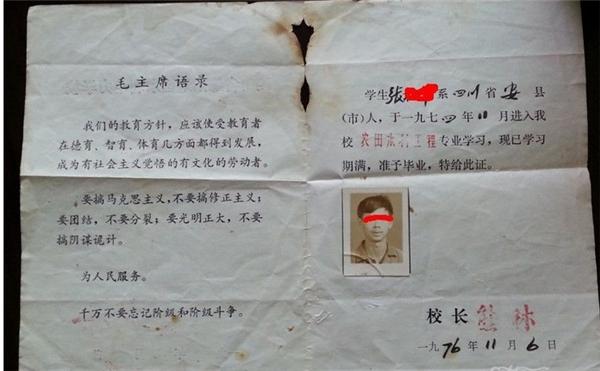 毛主席语录
我们的教育方针，应该使受教育者
在德育、智育、体育几方面都得到发展，
成为有社会主义觉悟的有文化的劳动者。
要搞马克思主义，不要搞修正主义；
要团结，不要分裂；要光明正大，不要
搞阴谋诡计。
为人民服务。
千万不要忘记阶级和阶级斗争。
学生张 系四川省安县
(市)人，于一九七四年11月进入我
校农田水利工程专业学习，现已学习
期满，准予毕业，特给此证。
校长熊林
一九76年11月6日